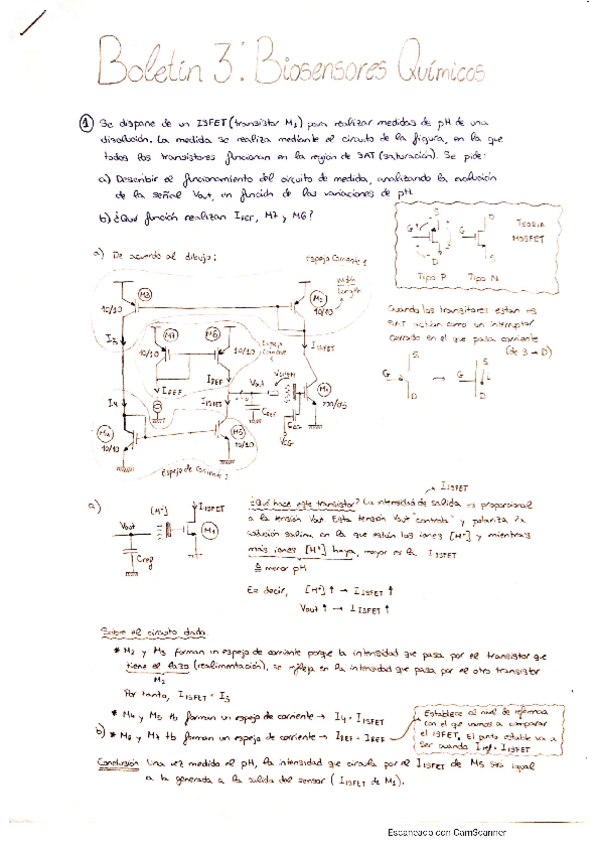 Boletín 3: Biosensores Químicos
① Se dispone de un ISFET (transistor M1) para realizar medidas de pH de una
disolución. La medida se realiza mediante el circuito de la figura, en la que
todos los transistores funcionan en la región de SAT (saturación). Se pide:
a) Describir el funcionamiento del circuito de medida, analizando la evolución
de la señal Vout, en función de las variaciones de pH.
b) ¿Qué función realizan IREF, M7 y M6?
TEORIA
MOSFET
G
S
D
Tipo P
G
D
S
Tipo N
a) De acuerdo al dibujo:
Espejo Corriente 1
width
length
M3
10/10
M2
10/10
M7
10/10
M6
10/10
I3
IREF
IREF
IISFET
IISFET
I4
Vout
M1
M4
10/10
M5
10/10
VCG
Espejo de Corriente 2
Cuando los transitores estan en
SAT actúan como un interruptor
cerrado en el que pasa corriente
(de S → D)
G
S
D
G
S
D
a)
[H+]
IISFET
Vout
M1
IISFET
¿Qué hace este transistor? La intensidad de salida es proporcional
a la tensión Vout. Esta tensión Vout "controla" y polariza la
solución salina en la que están los iones [H+] y mientras
más iones [H+] haya, mayor es la IISFET
≙ menor pH
Es decir, [H+] ↑ → IISFET ↑
Vout ↑ → IISFET ↑
Sobre el circuito dado:
* M2 y M3 forman un espejo de corriente porque la intensidad que pasa por el transistor que
tiene el lazo (realimentación), se refleja en la intensidad que pasa por el otro transistor
M2
Por tanto, IISFET = I3
* M4 y M5 tb forman un espejo de corriente → I4 = IISFET
b) * M6 y M7 tb forman un espejo de corriente → IREF = IREF
Establece el nivel de referencia
con el que vamos a comparar
el ISFET. El punto estable va a
ser cuando Iref = IISFET
Conclusión Una vez medido el pH, la intensidad que circula por el IISFET de M5 será igual
a la generada a la salida del sensor (IISFET de M1).
Escaneado con CamScanner